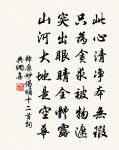 此心清淨本無瑕
只為貪求被物遮
突出眼睛全體露
山河大地是空花
釋原妙偈頌十二首詞
典網書